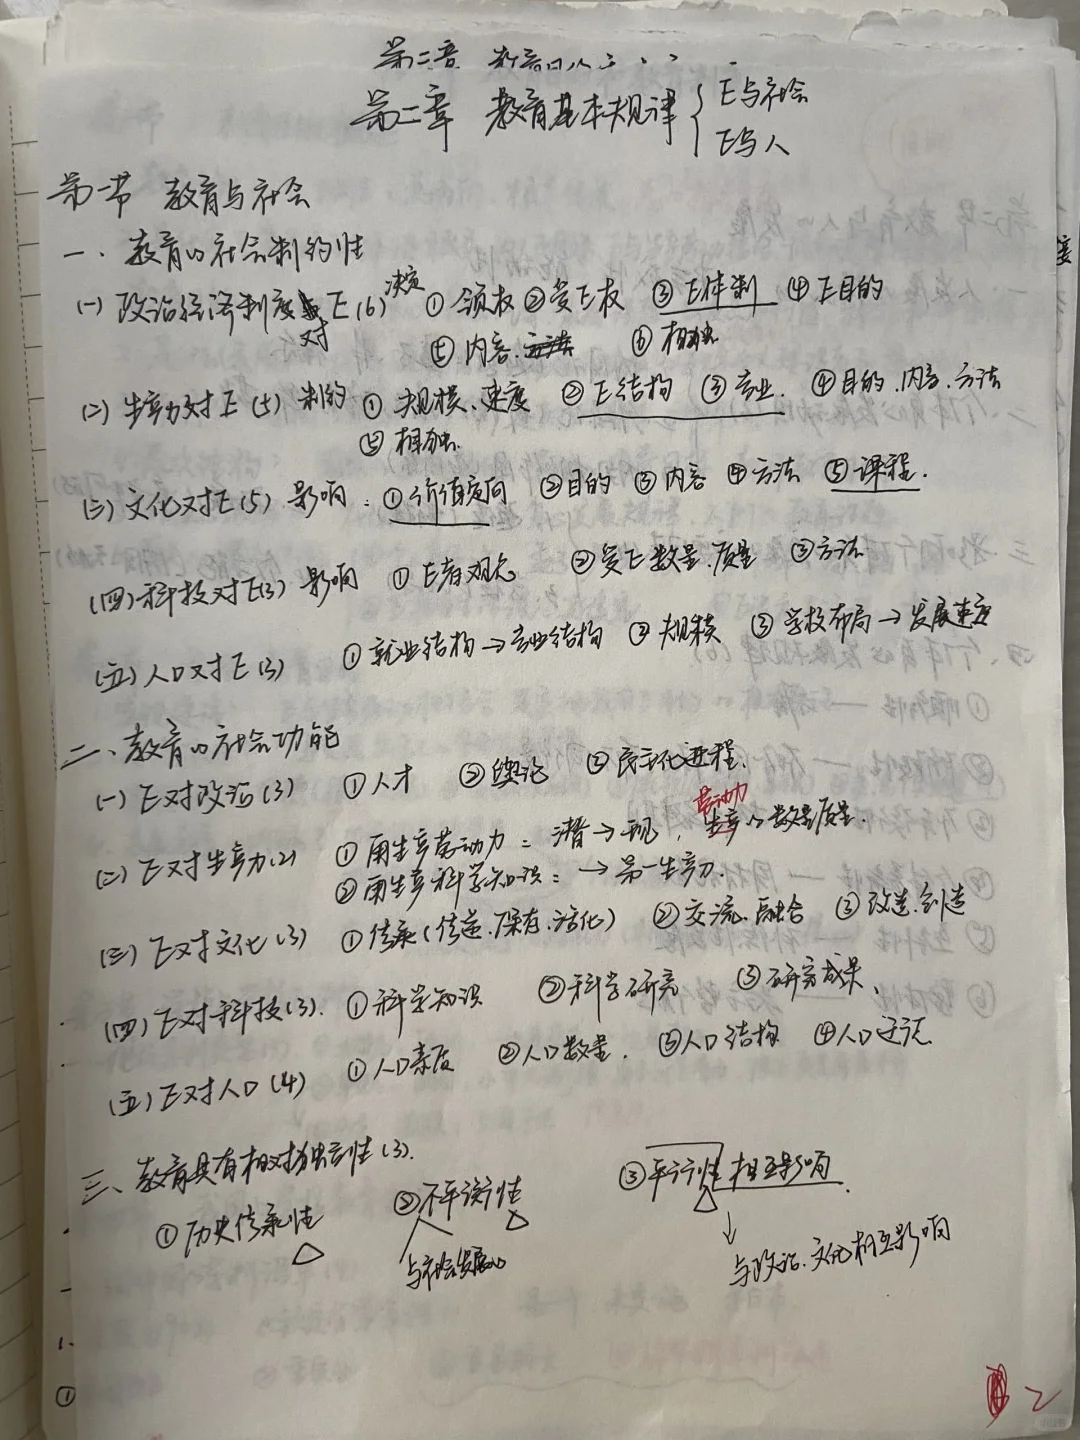 第二章
第二章 教育基本规律 { E与社会
E与人
第一节 教育与社会
一、教育的社会制约性
(一)政治经济制度对E(6)决定 ①领权 ②受E权 ③E体制 ④E目的
⑤内容 ⑥相独
(二)生产力对E(5)制约 ①规模、速度 ②E结构 ③专业 ④目的、内容、方法
⑤相独
(三)文化对E(5)影响: ①价值定向 ②目的 ③内容 ④方法 ⑤课程.
(四)科技对E(3)影响 ①E者观念 ②受E数量、质量 ③方法
(五)人口对E(3) ①就业结构→专业结构 ②规模 ③学校布局→发展速度
二、教育的社会功能
(一)E对政治(3) ①人才 ②舆论 ③民主化进程.
劳动力
(二)E对生产力(2) ①再生产劳动力: 潜→现, 的数量质量.
②再生产科学知识: →第一生产力.
(三)E对文化(3) ①传承(传递、保存、活化) ②交流、融合 ③改造、创造
(四)E对科技(3). ①科学知识 ②科学研究 ③研究成果、
(五)E对人口(4) ①人口素质 ②人口数量. ③人口结构 ④人口迁徙
三、教育具有相对独立性(3).
①历史传承性 ②不平衡性 ③平行性 相互影响
与社会发展 与政治、文化相互影响
2